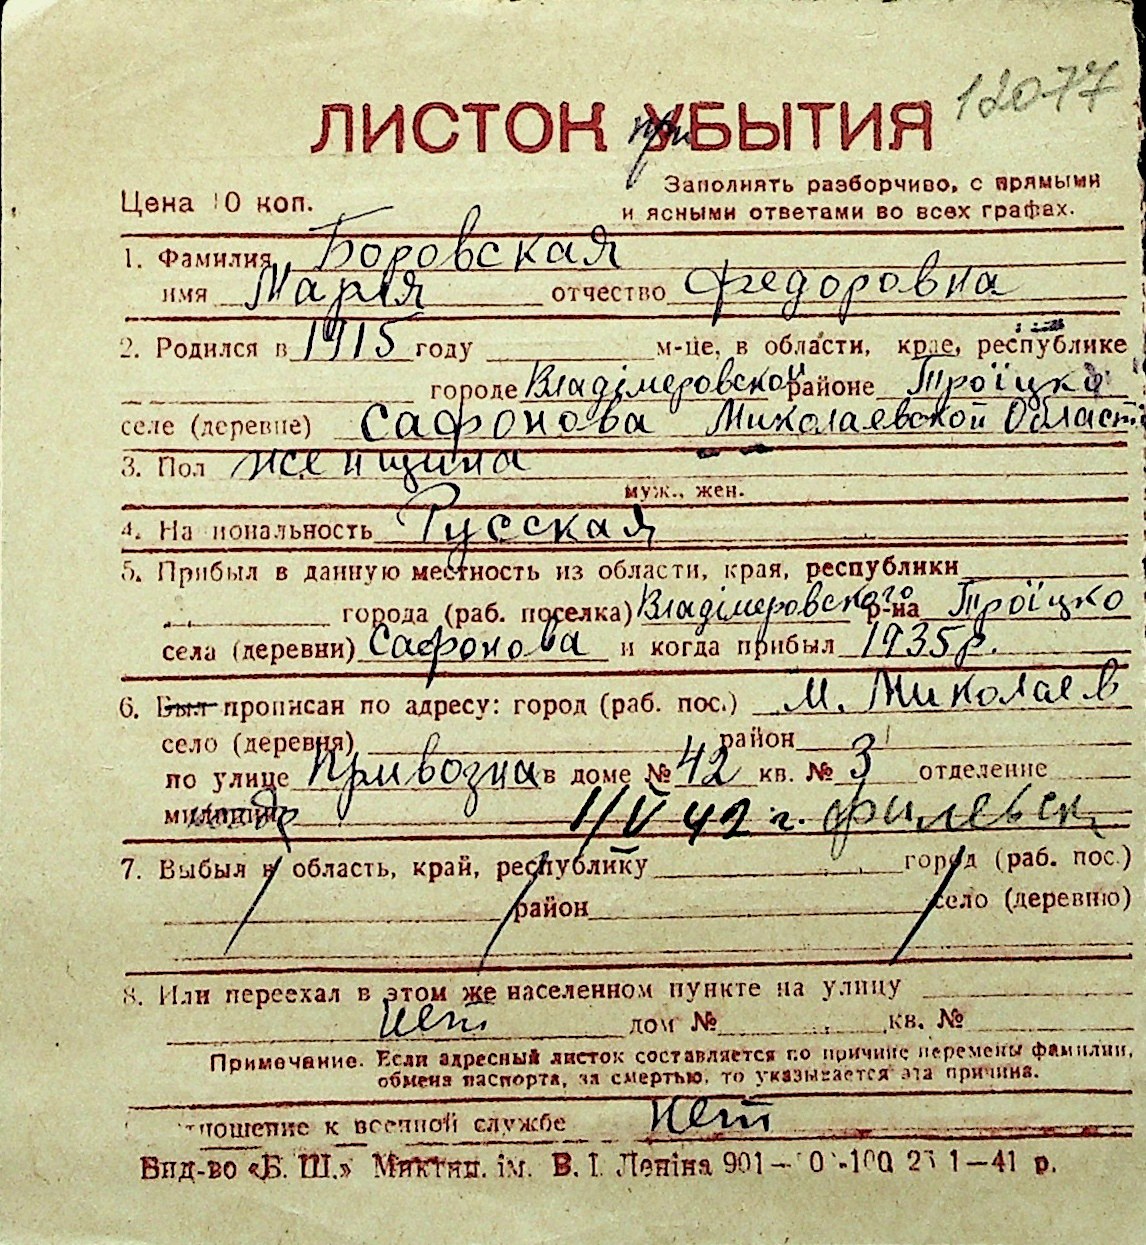 12077
ЛИСТОК УБЫТИЯ
при
Заполнять разборчиво, с прямыми
Цена 10 коп.
и ясными ответами во всех графах.
1. Фамилия Боровская
имя Марія отчество Федоровна
2. Родился в 1915 году м-це, в области, крае, республике
городе Владімеровской районе Троїцко
селе (деревне) Сафонова Николаевской Області
3. Пол женщина
муж., жен.
4. Национальность Русская
5. Прибыл в данную местность из области, края, республики
города (раб. поселка) Владімеровского р-на Троїцко
села (деревни) Сафонова и когда прибыл 1935р.
6. Был прописан по адресу: город (раб. пос.) М. Николаев
село (деревня) район
по улице Привозна в доме № 42 кв. № 3 отделение
милиции 1/V 42 г.
7. Выбыл в область, край, республику город (раб. пос.)
район село (деревню)
8. Или переехал в этом же населенном пункте на улицу
нет дом № кв. №
Примечание. Если адресный листок составляется по причине перемены фамилии,
обмена паспорта, за смертью, то указывается эта причина.
отношение к военной службе нет
Вид-во «Б. Ш.» Микгип. ім. В. І. Леніна 901— 1—41 р.